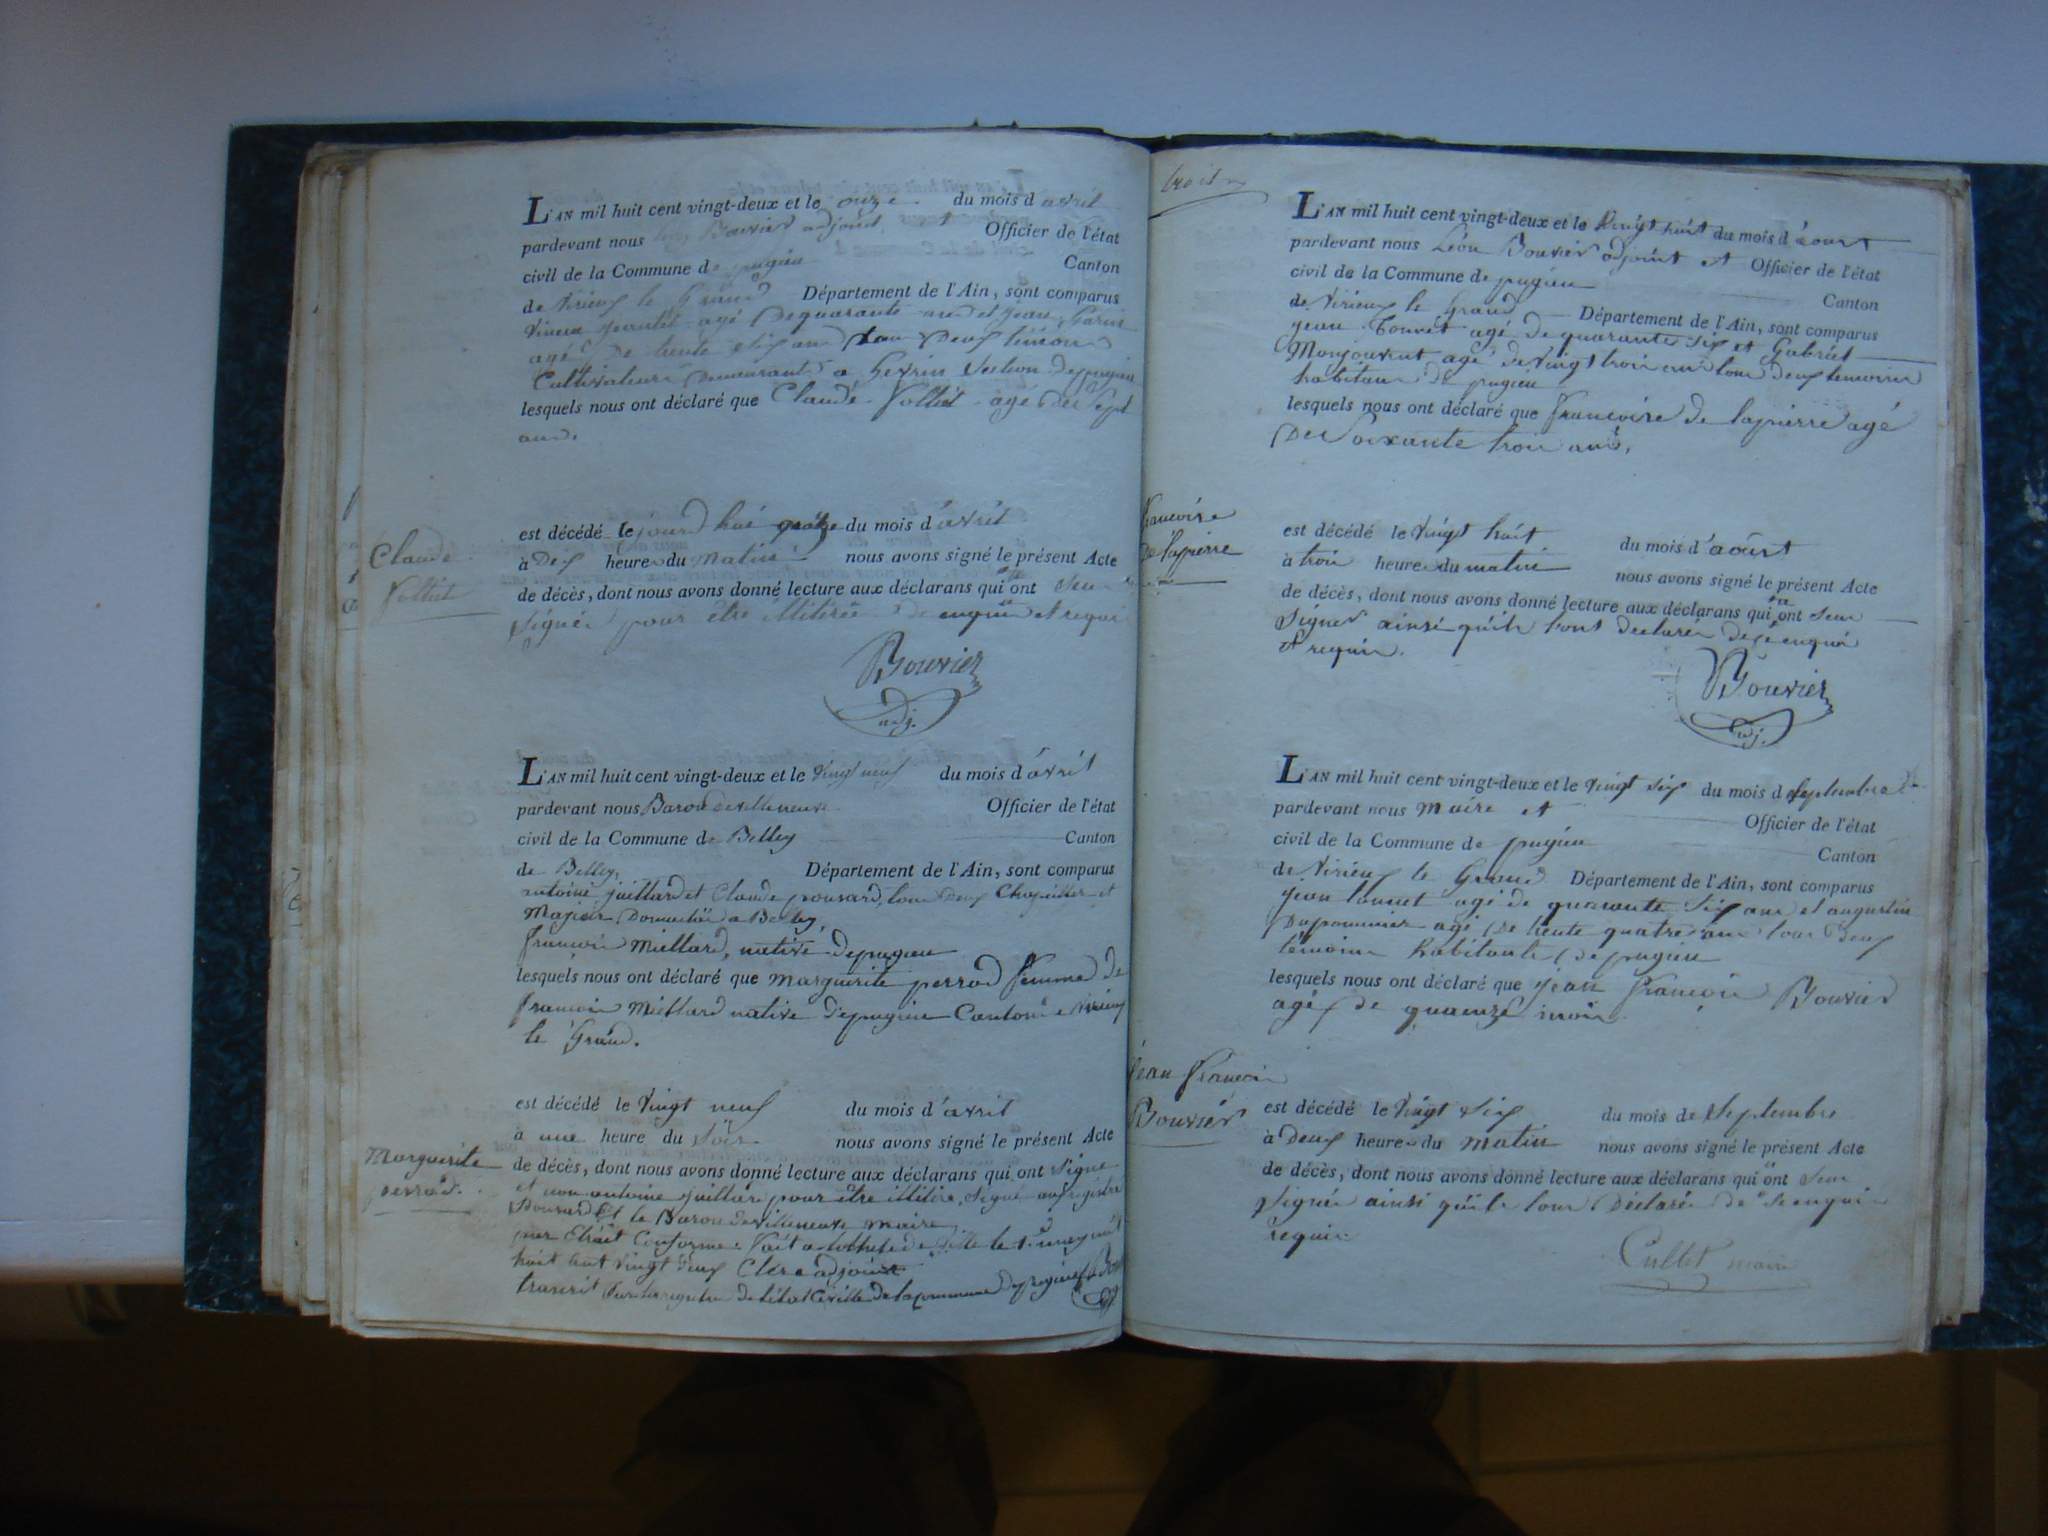 L'AN mil huit cent vingt-deux et le onze du mois d'avril
pardevant nous Bouvier adjoint et Officier de l'état
civil de la Commune de pugieu Canton
de Virieux le Grand Département de l'Ain, sont comparus
agé De quarante et jean
agé De trente Six ans tous Deux témoins
Cultivateurs Demeurants a Section De pugieu
lesquels nous ont déclaré que Claude Vollut agé De Sept
ans.
est décédé le jourd'hui onze du mois d'avril
à Dix heures du matin nous avons signé le présent Acte
de décès, dont nous avons donné lecture aux déclarans qui ont
signé pour être illitirée de enquis et requis
Bouvier
adj.
Claude
Vollut
L'AN mil huit cent vingt-deux et le vingt neuf du mois d'avril
pardevant nous Baron Devilleneuve Officier de l'état
civil de la Commune de Belley Canton
de Belley, Département de l'Ain, sont comparus
antoine juillard et Claude ponsard, tous Deux Chapellier et
Majeur Domicilié a Belley,
francois Miellard, native De pugieu
lesquels nous ont déclaré que marguerite perrod femme de
francois Miellard native De pugieu Canton de Virieux
le Grand.
est décédé le Vingt neuf du mois d'avril
à une heure du Soir nous avons signé le présent Acte
de décès, dont nous avons donné lecture aux déclarans qui ont signé
et non antoine juillard pour être illitiré, signé au registre
Ponsard et le Baron Devilleneuve maire
par Extrait Conforme Fait a de Ville le 1er
huit Cent Vingt Deux Clerc adjoint
transcrit sur les registres de l'état Civille De la commune De pugieu
Marguerite
perrod.
trois
L'AN mil huit cent vingt-deux et le Vingt huit du mois d'aoust
pardevant nous Léon Bouvier adjoint et Officier de l'état
civil de la Commune de pugieu Canton
de Virieux le Grand Département de l'Ain, sont comparus
jean Touvet agé de quarante Six et Gabriel
Monjouvent agé de Vingt trois ans tous deux temoins
habitans De pugieu
lesquels nous ont déclaré que francoise de lapierre agé
De Soixante trois ans,
est décédé le Vingt huit du mois d'aoûst
à trois heures du matin nous avons signé le présent Acte
de décès, dont nous avons donné lecture aux déclarans qui ont Seu
Signer ainsi qu'ils l'ont declarér de ce enquis
et requis.
Bouvier
adj.
francoise
De lapierre
L'AN mil huit cent vingt-deux et le vingt Six du mois de Septembre
pardevant nous maire et Officier de l'état
civil de la Commune de pugieu Canton
de Virieux le Grand Département de l'Ain, sont comparus
jean touvet agé de quarante Six ans et augustin
Dupommier agé De trente quatre ans tous Deux
témoins habitants De pugieu
lesquels nous ont déclaré que jean francois Bouvier
agé de quainze mois
est décédé le Vingt Six du mois de Septembre
à Deux heures du Matin nous avons signé le présent Acte
de décès, dont nous avons donné lecture aux déclarans qui ont Seu
Signér ainsi qu'ils l'ont Déclaré De ce enquis
requis
Cullet maire
jean francois
Bouvier